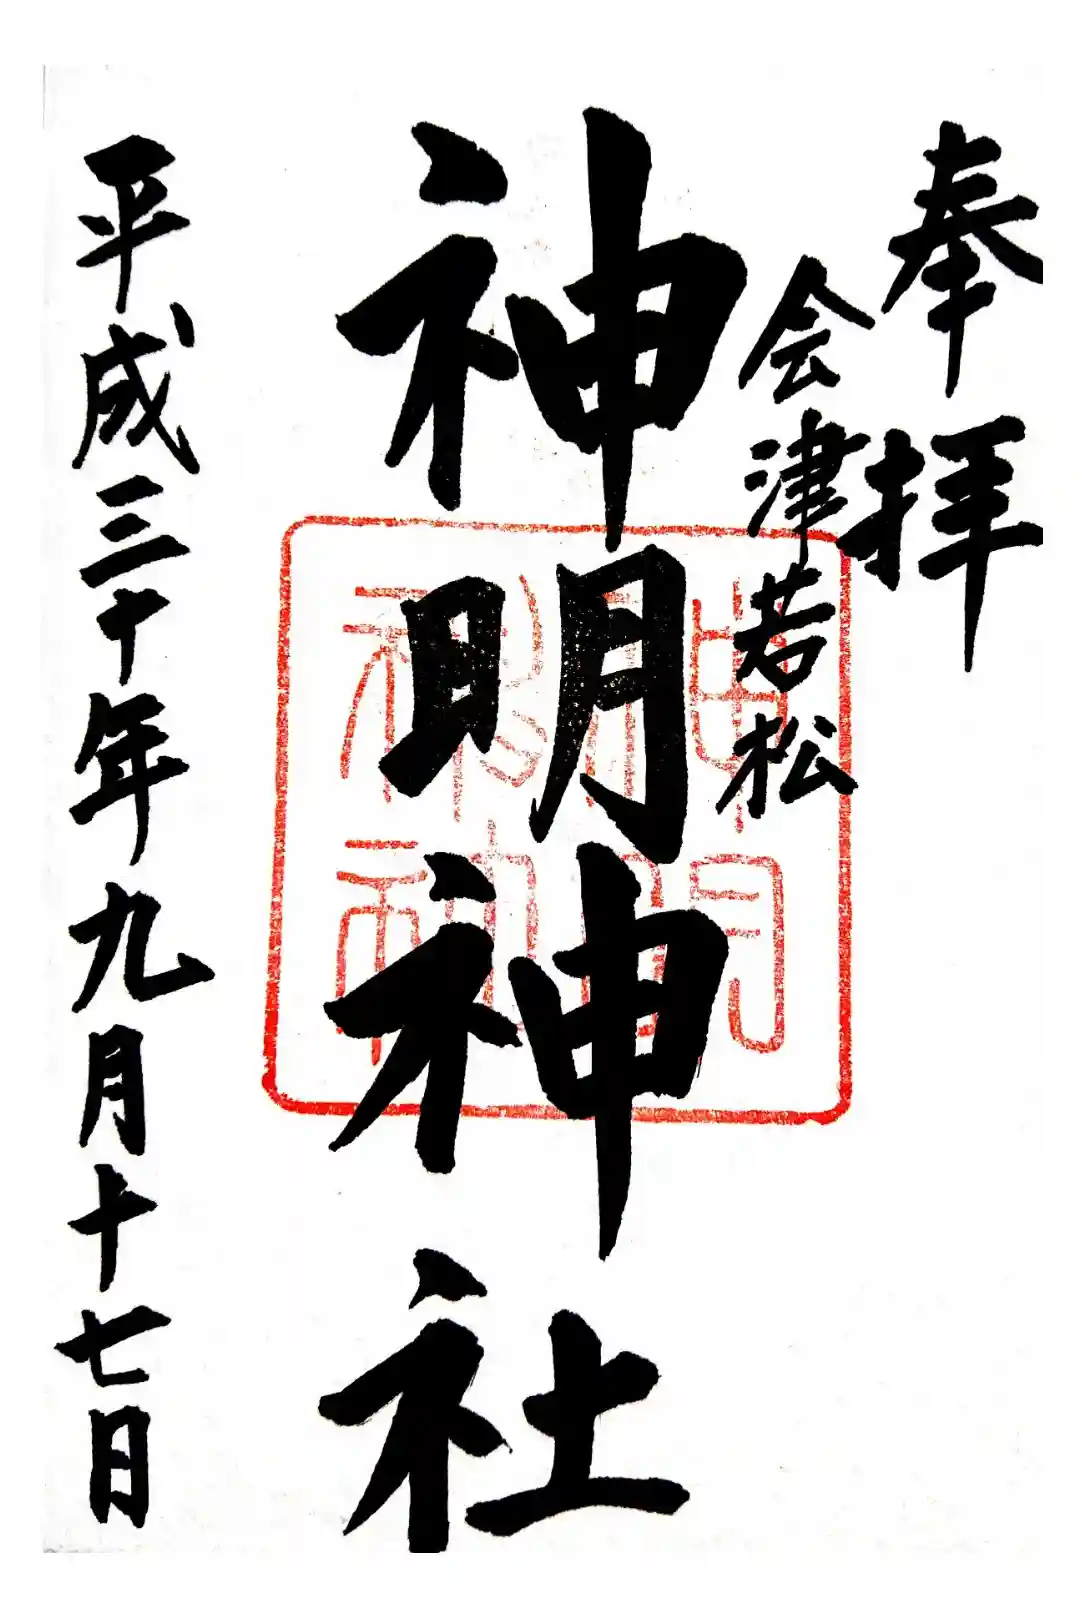 奉拝
会津若松
神明神社
神明神社
平成三十年九月十七日